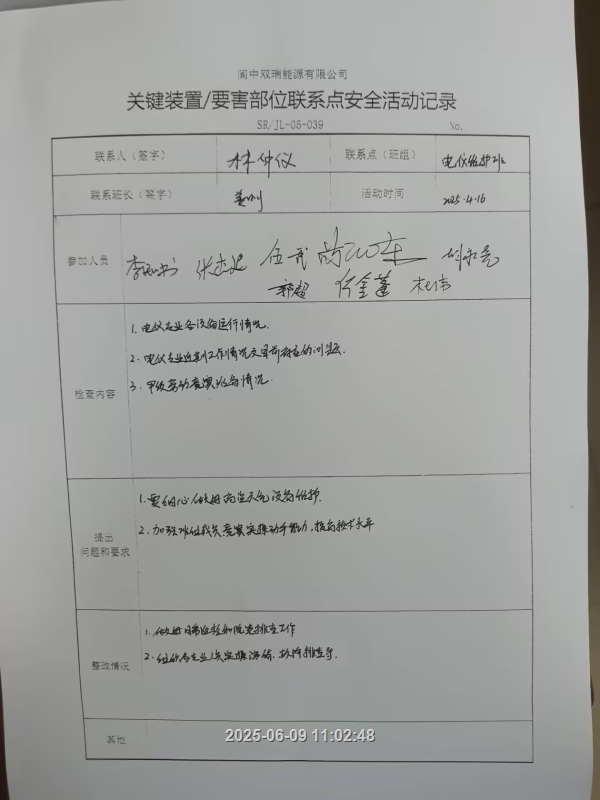 阆中双瑞能源有限公司
关键装置/要害部位联系点安全活动记录
SR/JL-05-039 No.
联系人（签字） 林仲仪 联系点（班组） 电仪维护班
联系班长（签字） 活动时间 2025.4.16
参加人员 李 张 伍
郭超 杜伟
检查内容
1. 电仪专业各设备运行情况.
2. 电仪专业近期工作情况及目前存在的问题.
3. 劳动竞赛准备情况.
提出
问题和要求
1. 要细心做好 天气设备维护.
2. 加强 竞赛实操动手能力, 提高技术水平
整改情况
1. 做好日常巡检和隐患排查工作
2. 组织各专业人员实操演练, 故障排查等.
其他
2025-06-09 11:02:48